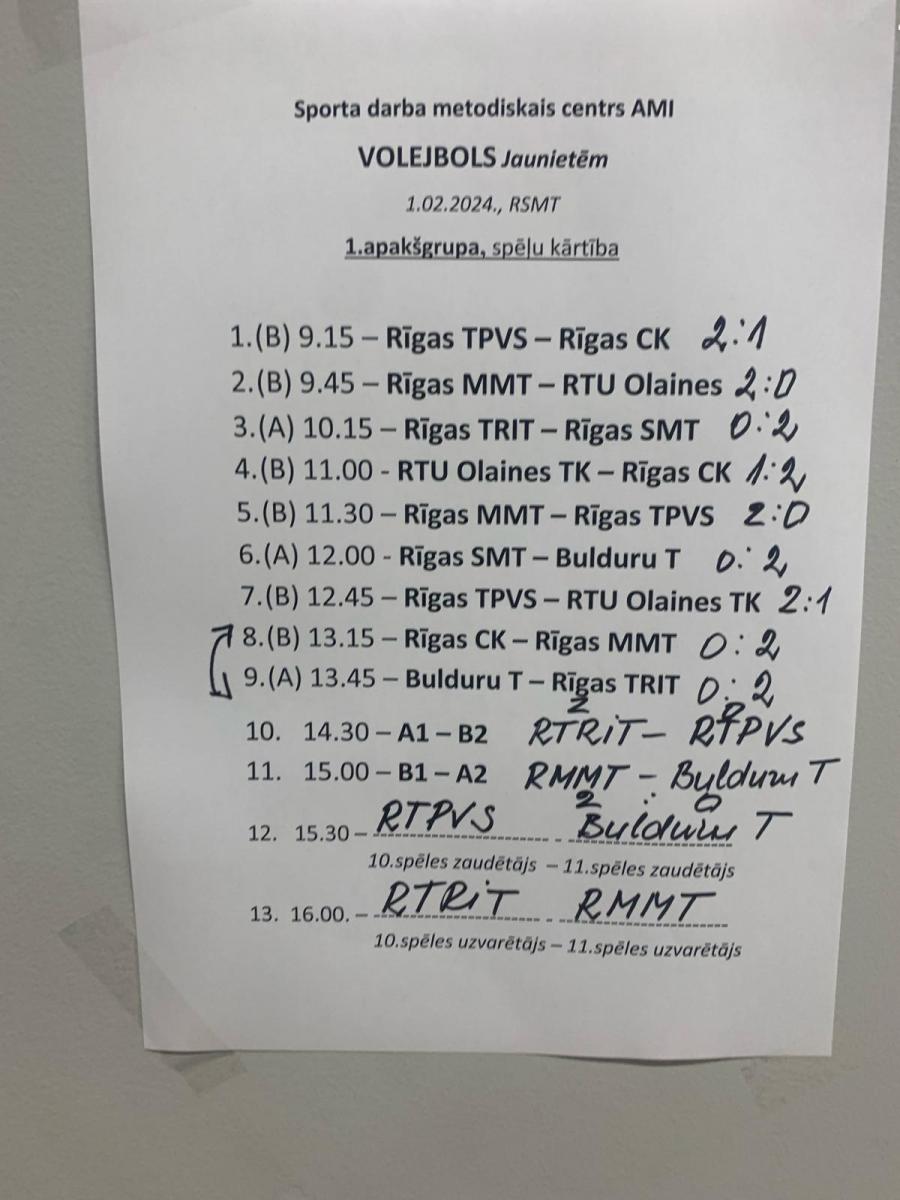 Sporta darba metodiskais centrs AMI
VOLEJBOLS Jaunietēm
1.02.2024., RSMT
1.apakšgrupa, spēļu kārtība
1.(B) 9.15 – Rīgas TPVS – Rīgas CK 2:1
2.(B) 9.45 – Rīgas MMT – RTU Olaines 2:0
3.(A) 10.15 – Rīgas TRIT – Rīgas SMT 0:2
4.(B) 11.00 - RTU Olaines TK – Rīgas CK 1:2
5.(B) 11.30 – Rīgas MMT – Rīgas TPVS 2:0
6.(A) 12.00 - Rīgas SMT – Bulduru T 0:2
7.(B) 12.45 – Rīgas TPVS – RTU Olaines TK 2:1
8.(B) 13.15 – Rīgas CK – Rīgas MMT 0:2
9.(A) 13.45 – Bulduru T – Rīgas TRIT 0:2
2 0
10. 14.30 – A1 – B2 RTRiT – RTPVS
11. 15.00 – B1 – A2 RMMT – Bulduru T
2 : 0
12. 15.30 – RTPVS - Bulduru T
10.spēles zaudētājs – 11.spēles zaudētājs
13. 16.00. – RTRiT - RMMT
10.spēles uzvarētājs – 11.spēles uzvarētājs